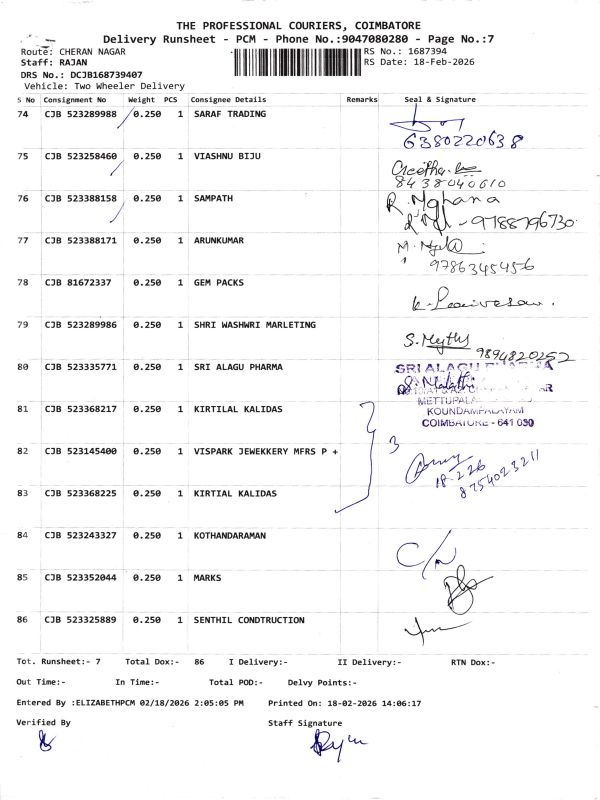 THE PROFESSIONAL COURIERS, COIMBATORE
Delivery Runsheet - PCM - Phone No.:9047080280 - Page No.:7
Route: CHERAN NAGAR RS No.: 1687394
Staff: RAJAN RS Date: 18-Feb-2026
DRS No.: DCJB168739407
Vehicle: Two Wheeler Delivery
S No Consignment No Weight PCS Consignee Details Remarks Seal & Signature
74 CJB 523289988 0.250 1 SARAF TRADING
6380220638
75 CJB 523258460 0.250 1 VIASHNU BIJU
8438040610
76 CJB 523388158 0.250 1 SAMPATH R. Mghana
9788796730
77 CJB 523388171 0.250 1 ARUNKUMAR
9786345456
78 CJB 81672337 0.250 1 GEM PACKS
79 CJB 523289986 0.250 1 SHRI WASHWRI MARLETING S. Mythy
9894820252
80 CJB 523335771 0.250 1 SRI ALAGU PHARMA SRI ALAGU PHARMA
81 CJB 523368217 0.250 1 KIRTILAL KALIDAS
KOUNDAMPALAYAM
COIMBATORE - 641 030
82 CJB 523145400 0.250 1 VISPARK JEWEKKERY MFRS P + 3
18-2-26
8754023211
83 CJB 523368225 0.250 1 KIRTIAL KALIDAS
84 CJB 523243327 0.250 1 KOTHANDARAMAN C/N
85 CJB 523352044 0.250 1 MARKS
86 CJB 523325889 0.250 1 SENTHIL CONDTRUCTION
Tot. Runsheet:- 7 Total Dox:- 86 I Delivery:- II Delivery:- RTN Dox:-
Out Time:- In Time:- Total POD:- Delvy Points:-
Entered By :ELIZABETHPCM 02/18/2026 2:05:05 PM Printed On: 18-02-2026 14:06:17
Verified By Staff Signature